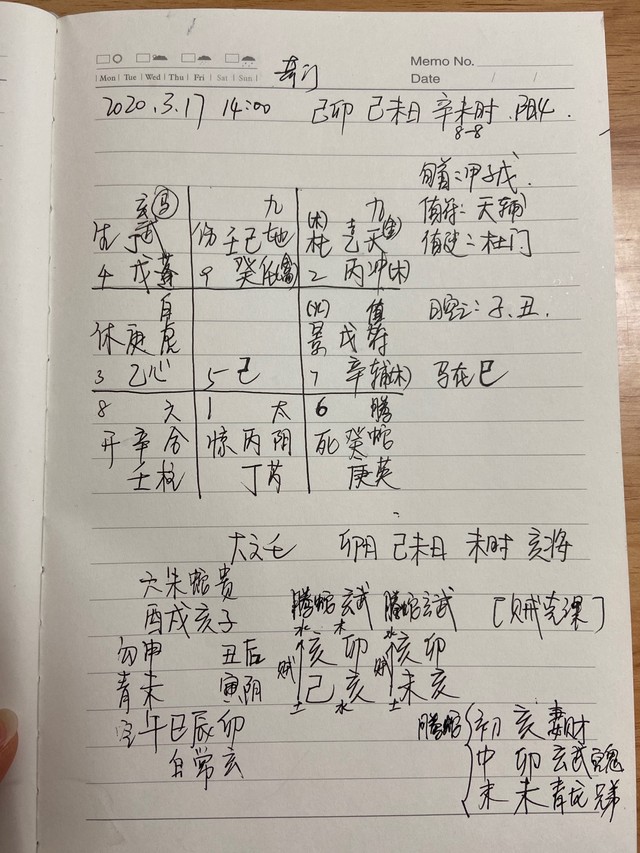 Memo No.
Mon | Tue | Wed | Thu | Fri | Sat | Sun
Date / /
奇门
2020.3.17 14:00 己卯 己未日 辛未时 阳4.
8-8
旬首:甲子戊
玄 马 九 九
生 丁 武 伤 壬己 地 (木)杜 乙 天(金)
值符:天辅
值使:杜门
4 戊 蓬 9 癸 任 2 丙 冲(木)
白 (火) 值
日空:子、丑.
休 庚 虎 景 戊 符
3 乙 心 5 己 7 辛 辅(木)
马在巳
8 六 1 太 6 腾
开 辛 合 惊 丙 阴 死 癸 蛇
壬 柱 丁 芮 庚 英
大六壬 卯月 己未日 未时 亥将
六朱蛇贵
酉戌亥子
腾蛇 玄武 腾蛇 玄武
[贼克课]
水 木 水
勾申 丑后
贼 亥 卯 贼 亥 卯
青未 寅阴
己 亥 未 亥
土 水 土
空午巳辰卯
白常玄
腾蛇 初 亥 妻财
中 卯 玄武 官鬼
末 未 青龙 兄弟